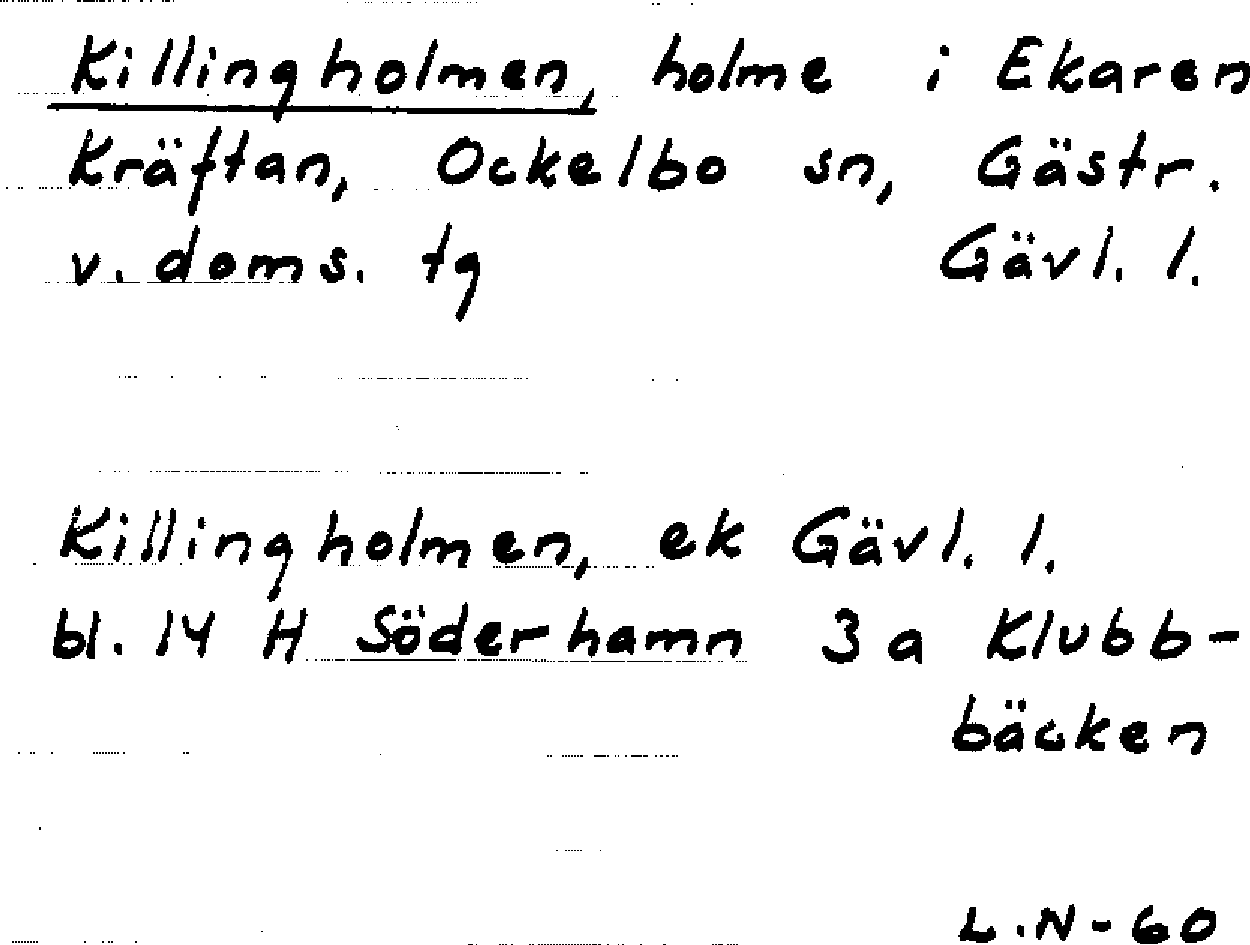 Killingholmen, holme i Ekaren
Kräftan, Ockelbo sn, Gästr.
v. doms. tg Gävl. l.
Killingholmen, ek Gävl. l.
bl. 14 H Söderhamn 3 a Klubb-
bäcken
L.N-60